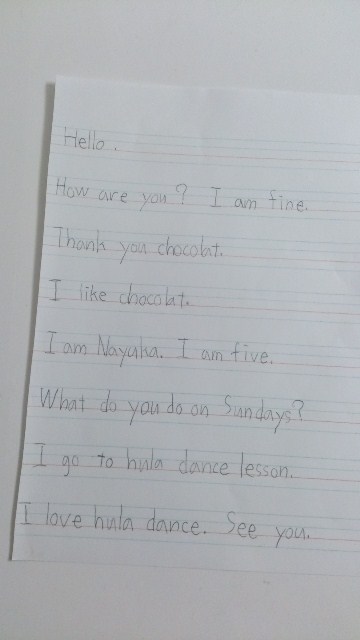 Hello.
How are you? I am fine.
Thank you chocolat.
I like chocolat.
I am Nayuha. I am five.
What do you do on Sundays?
I go to hula dance lesson.
I love hula dance. See you.